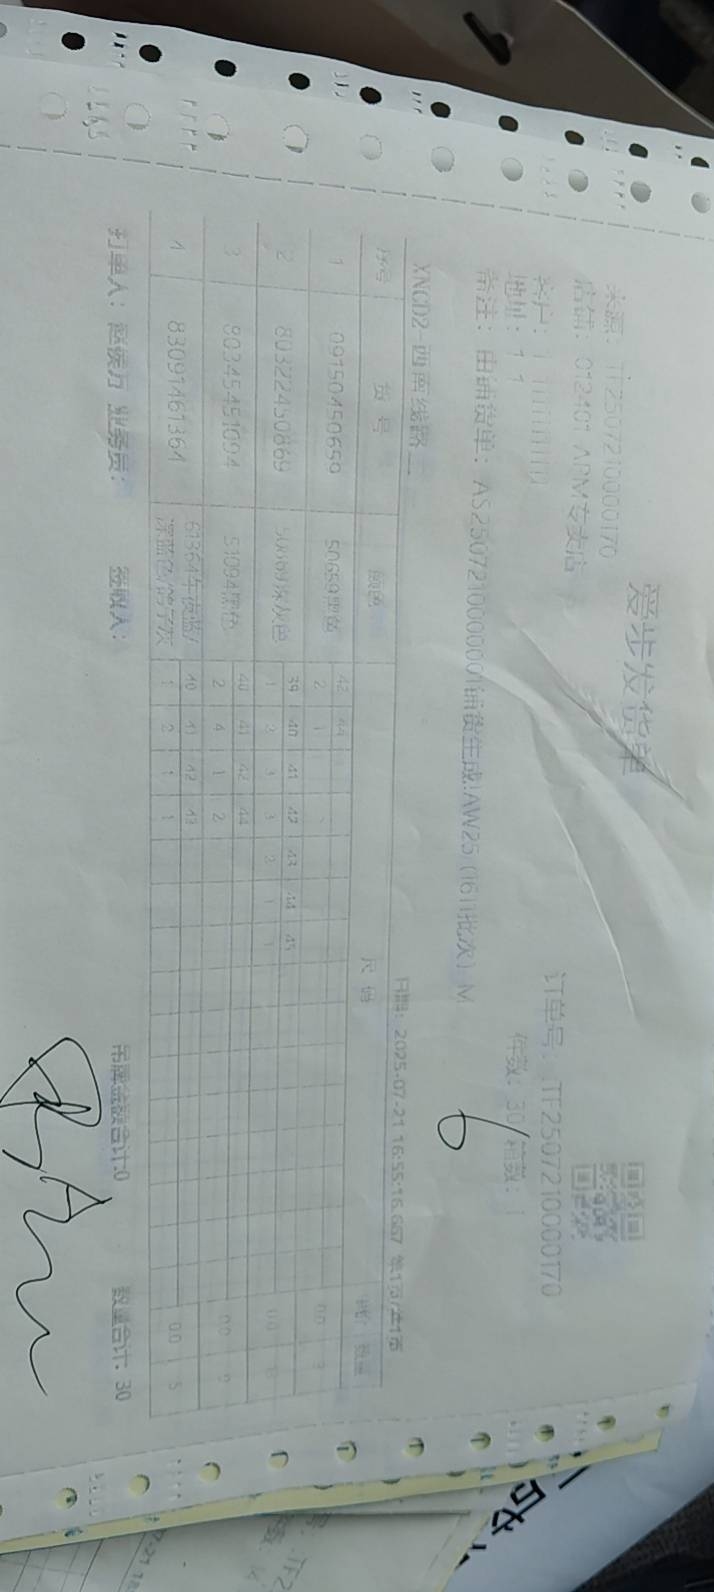 爱步发货单
来源: TF2507210000170
店铺: 012401 APM专卖店
订单号: TF2507210000170
地址: 1 1
件数: 30 箱数: 1
备注: 由铺货单: AS2507210000001铺货生成!AW25 (1611批次) M
6
XNCD2-西南线路一
日期: 2025-07-21 16:55:16.667 第1页/共1页
序号 货号 颜色 尺码 数量
42 44
1 09150450659 50659黑色 2 1 0.0 3
39 40 41 42 43 44 45
2 80322450869 50869深灰色 1 2 3 3 2 1 1 0.0
40 41 42 44
3 80345451094 51094黑色 2 4 1 2 0.0 9
61364午夜蓝/ 40 41 42 43
4 83091461364 深蓝色/鸽子灰 1 2 1 1 0.0 5
打单人: 业务员: 签收人: 吊牌金额合计:0 数量合计: 30